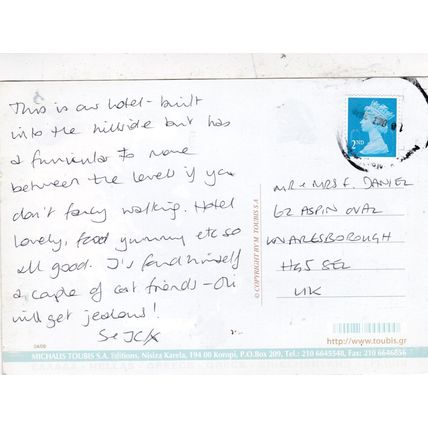 This is our hotel - built
into the hillside but has
a funicular to move
between the levels if you
don't fancy walking. Hotel
lovely, food yummy etc so
all good. J's found himself
a couple of cat friends - Oli
will get jealous!
S & JC/X
2ND
MR & MRS F. DANIEL
62 ASPIN OVAL
KNARESBOROUGH
HG5 8EL
UK
© COPYRIGHT BY M. TOUBIS S.A
http://www.toubis.gr
MICHALIS TOUBIS S.A. Editions, Nisiza Karela, 194 00 Koropi, P.O.Box 209, Tel.: 210 6645548, Fax: 210 6646856